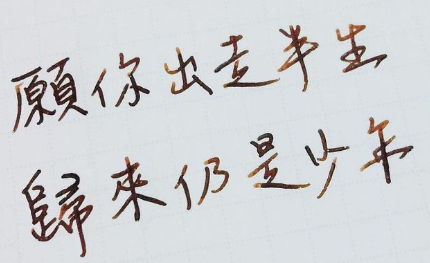 願你出走半生
歸來仍是少年